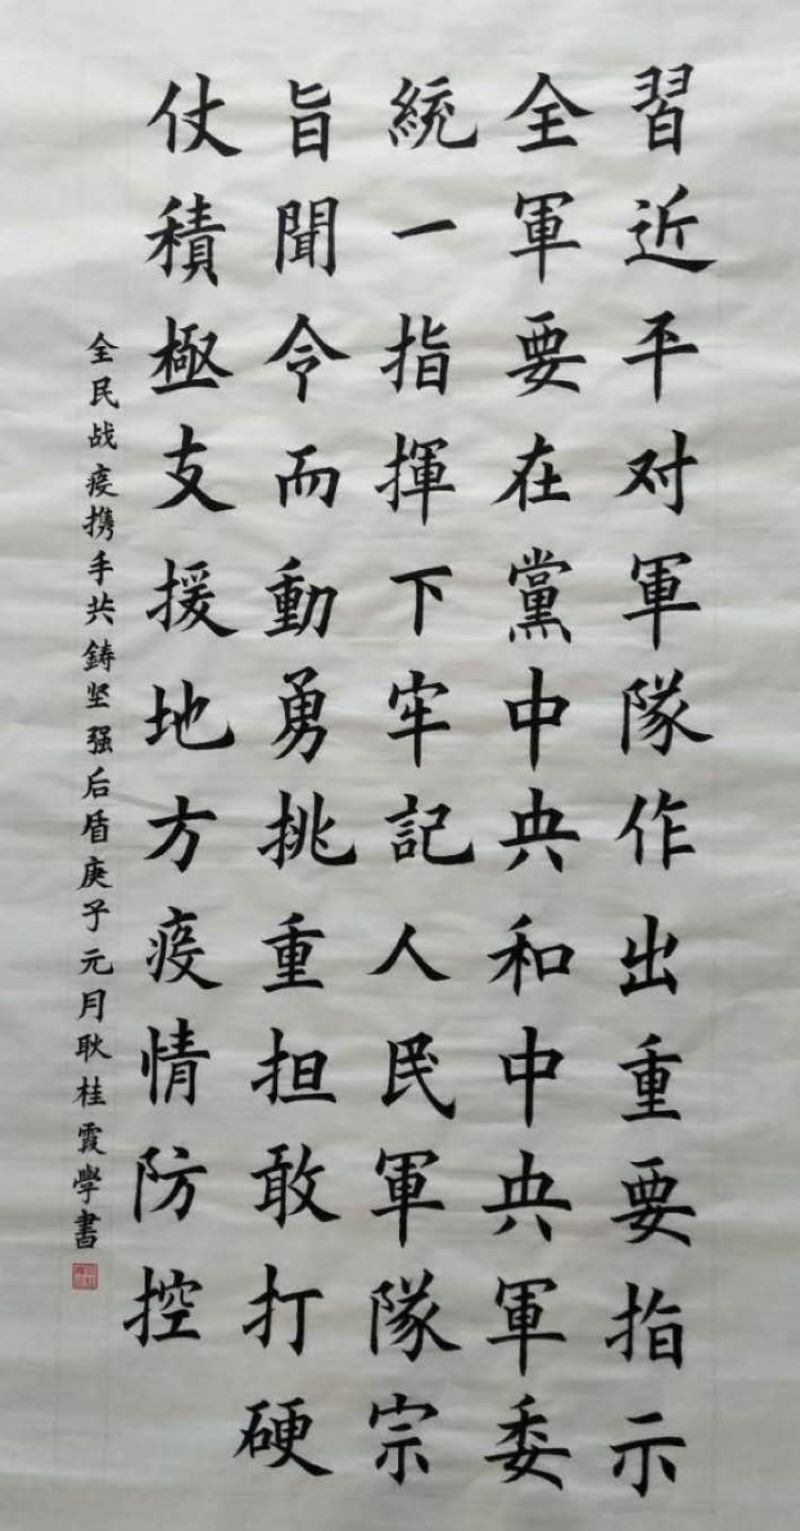 習近平对軍隊作出重要指示
全軍要在黨中央和中央軍委
統一指揮下牢記人民軍隊宗
旨聞令而動勇挑重担敢打硬
仗積極支援地方疫情防控
全民战疫携手共鋳坚强后盾庚子元月耿桂霞學書